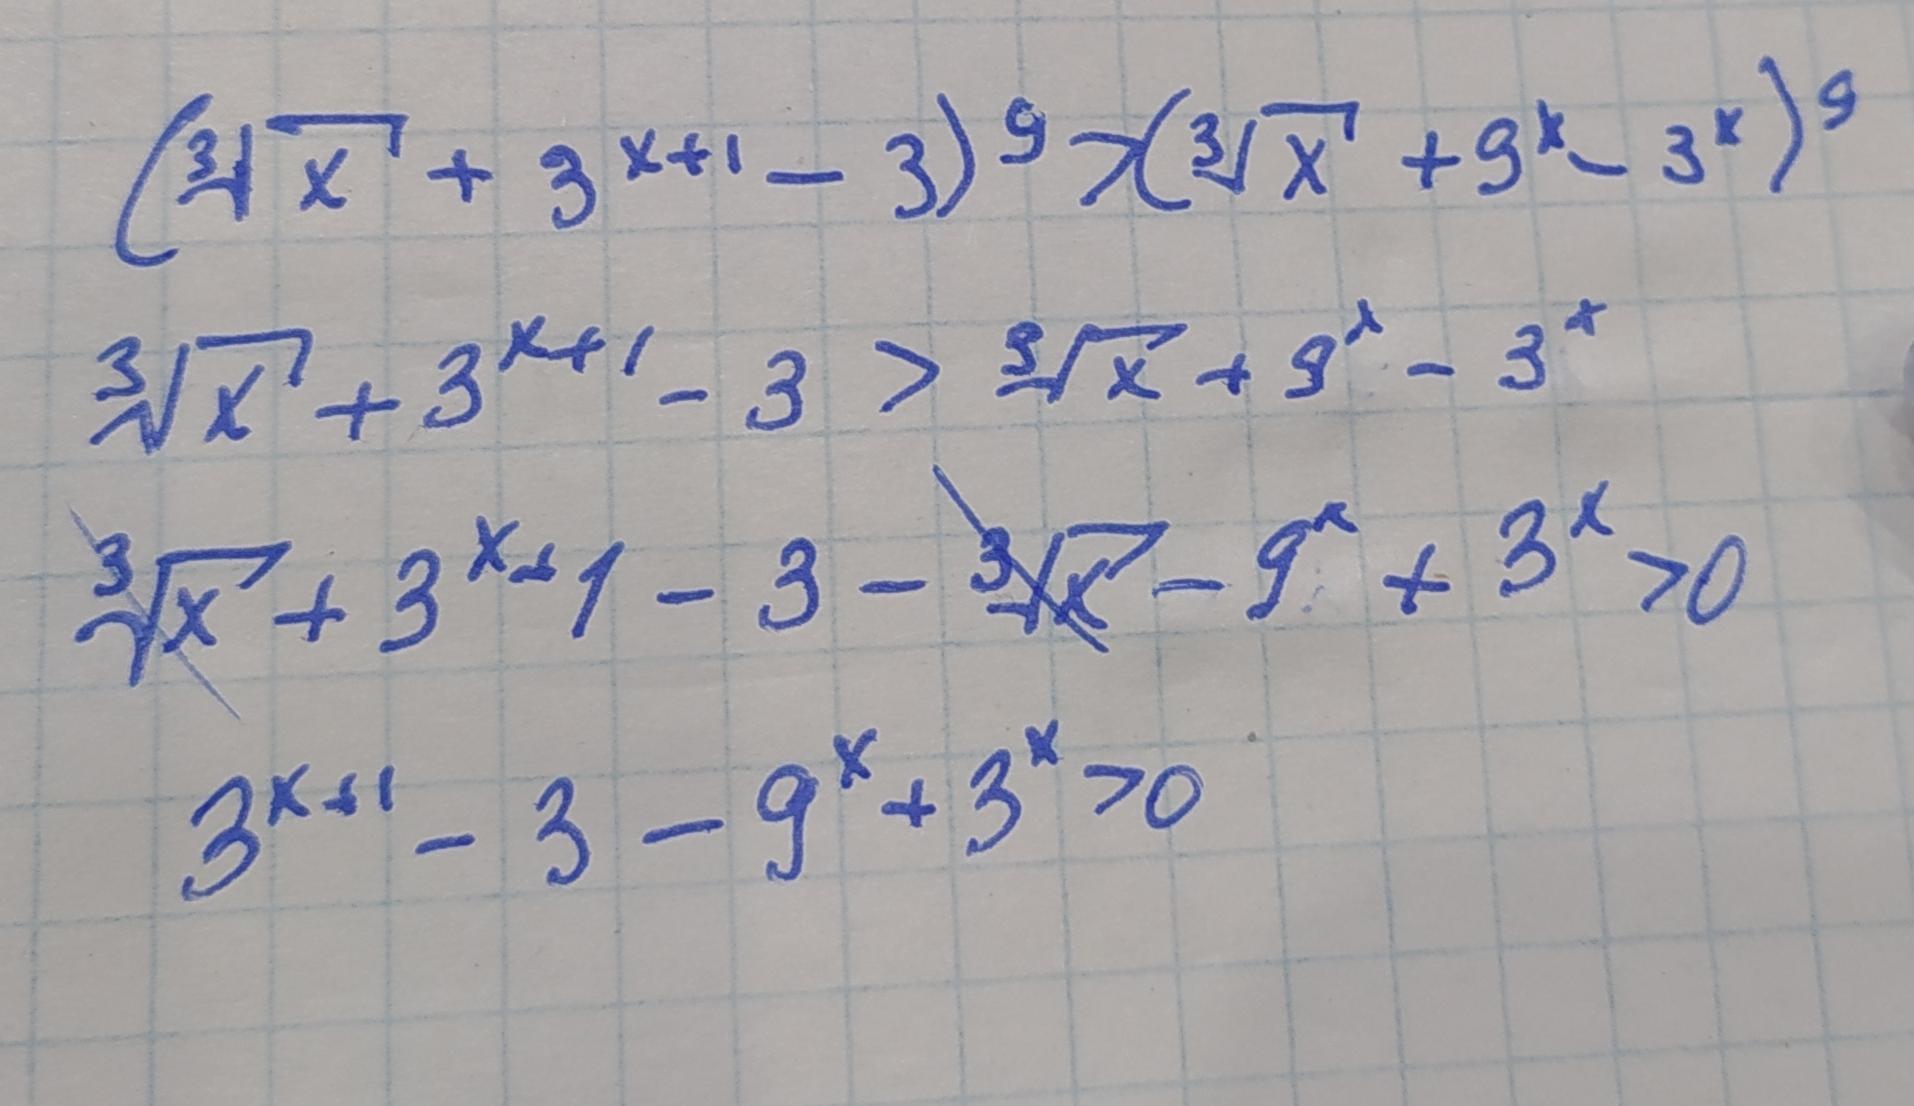 (∛x + 3^(x+1) - 3)^9 > (∛x + 9^x - 3^x)^9
∛x + 3^(x+1) - 3 > ∛x + 9^x - 3^x
∛x + 3^(x+1) - 3 - ∛x - 9^x + 3^x > 0
3^(x+1) - 3 - 9^x + 3^x > 0